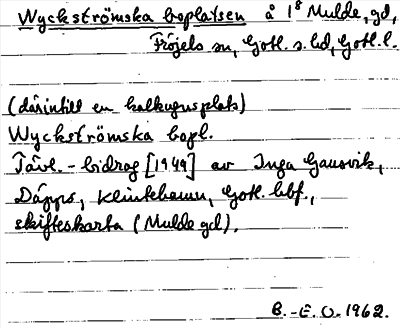 Wyckströmska boplatsen å 1⁸ Mulde, gd,
Fröjels sn, Gotl. s. hd, Gotl. l.
(därintill en kalkugnsplats)
Wyckströmska bopl.
Tävl.-bidrag [1949] av Inga Gausvik,
Däpps, Klintehamn, Gotl. hbf.,
skifteskarta (Mulde gd).
B.-E. O. 1962.